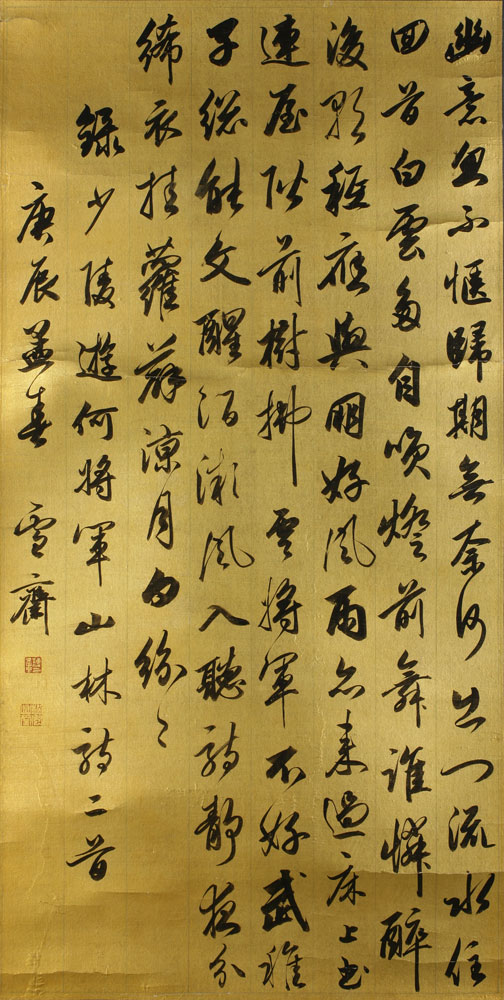 幽意忽不愜歸期無奈何出門流水住
回首白雲多自笑燈前舞誰憐醉
後歌秖應與朋好風雨亦來過床上書
連屋階前樹拂雲將軍不好武稚
子總能文醒酒微風入聽詩靜夜分
絺衣挂蘿薜涼月白紛〻
錄少陵遊何將軍山林詩二首
庚辰孟春 雪齋